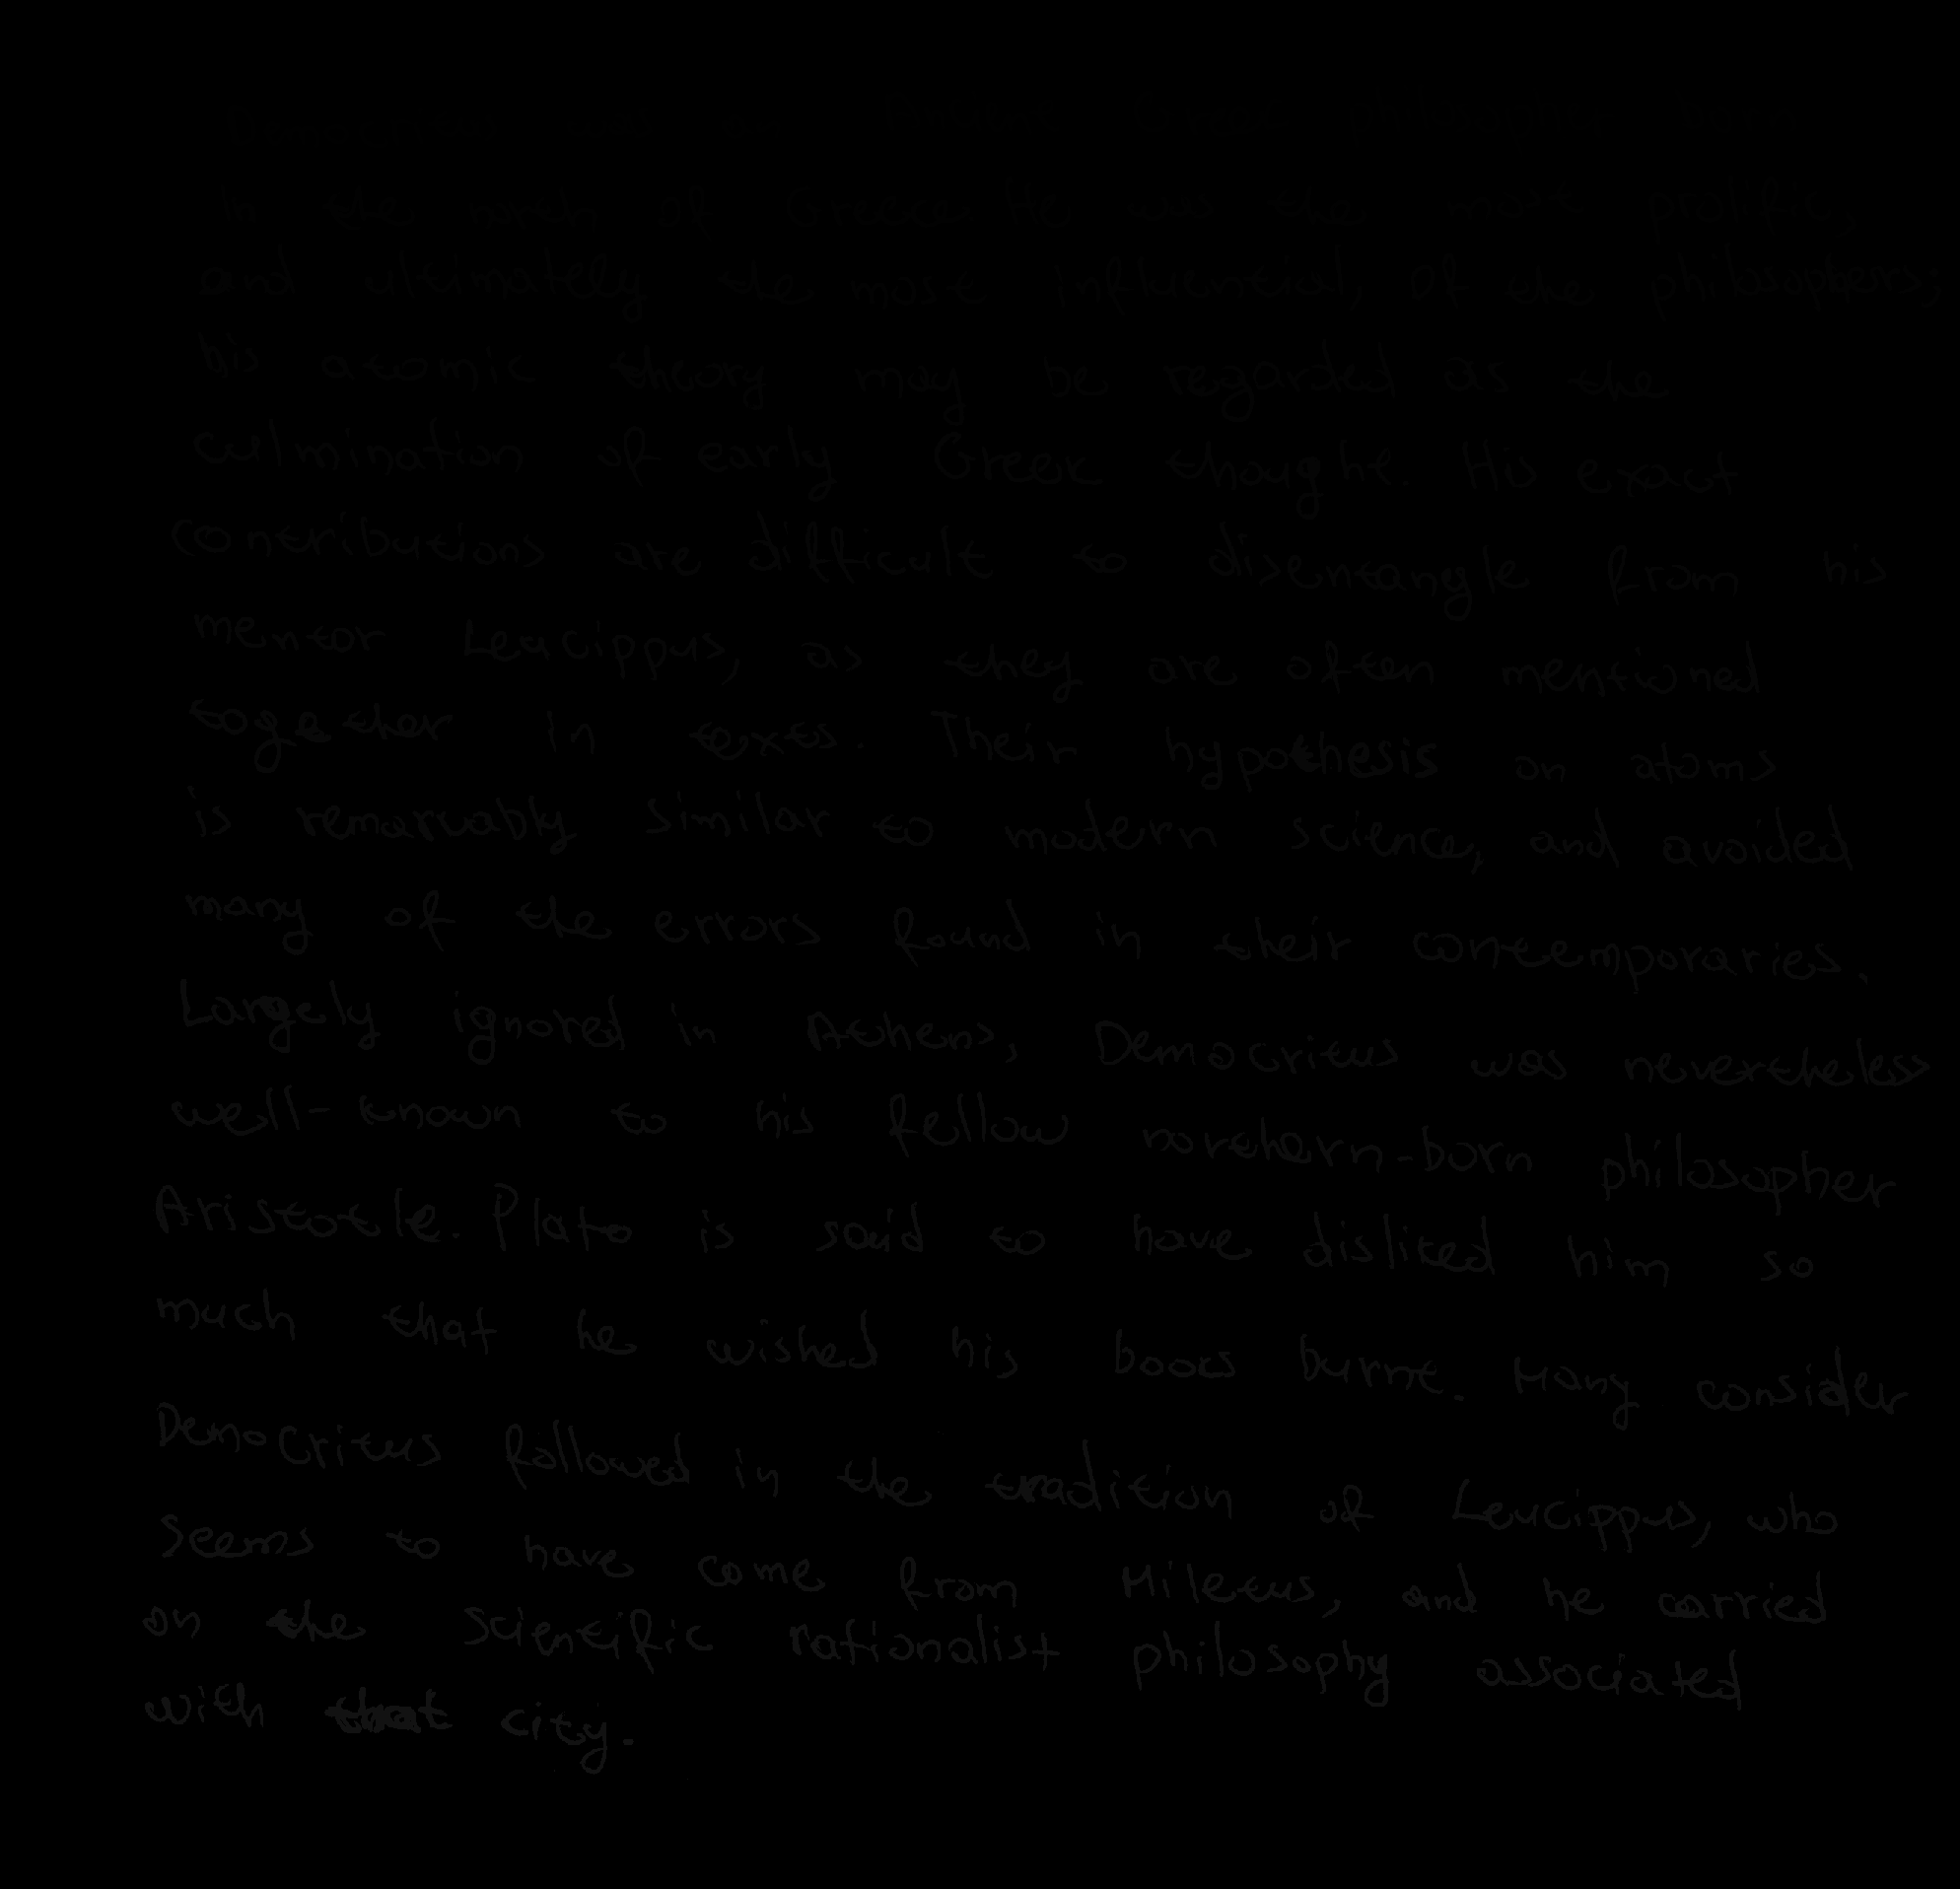 in the north of Greece. He was the most prolific,
and ultimately the most influential, of the philosophers;
his atomic theory may be regarded as the
culmination of early Greek thought. His exact
contributions are difficult to disentangle from his
mentor Leucippus, as they are often mentioned
together in texts. Their hypothesis on atoms
is remarkably similar to modern science, and avoided
many of the errors found in their contemporaries.
Largely ignored in Athens, Democritus was nevertheless
well-known to his fellow northern-born philosopher
Aristotle. Plato is said to have disliked him so
much that he wished his books burnt. Many consider
Democritus followed in the tradition of Leucippus, who
seems to have come from Miletus, and he carried
on the scientific rationalist philosophy associated
with that city.